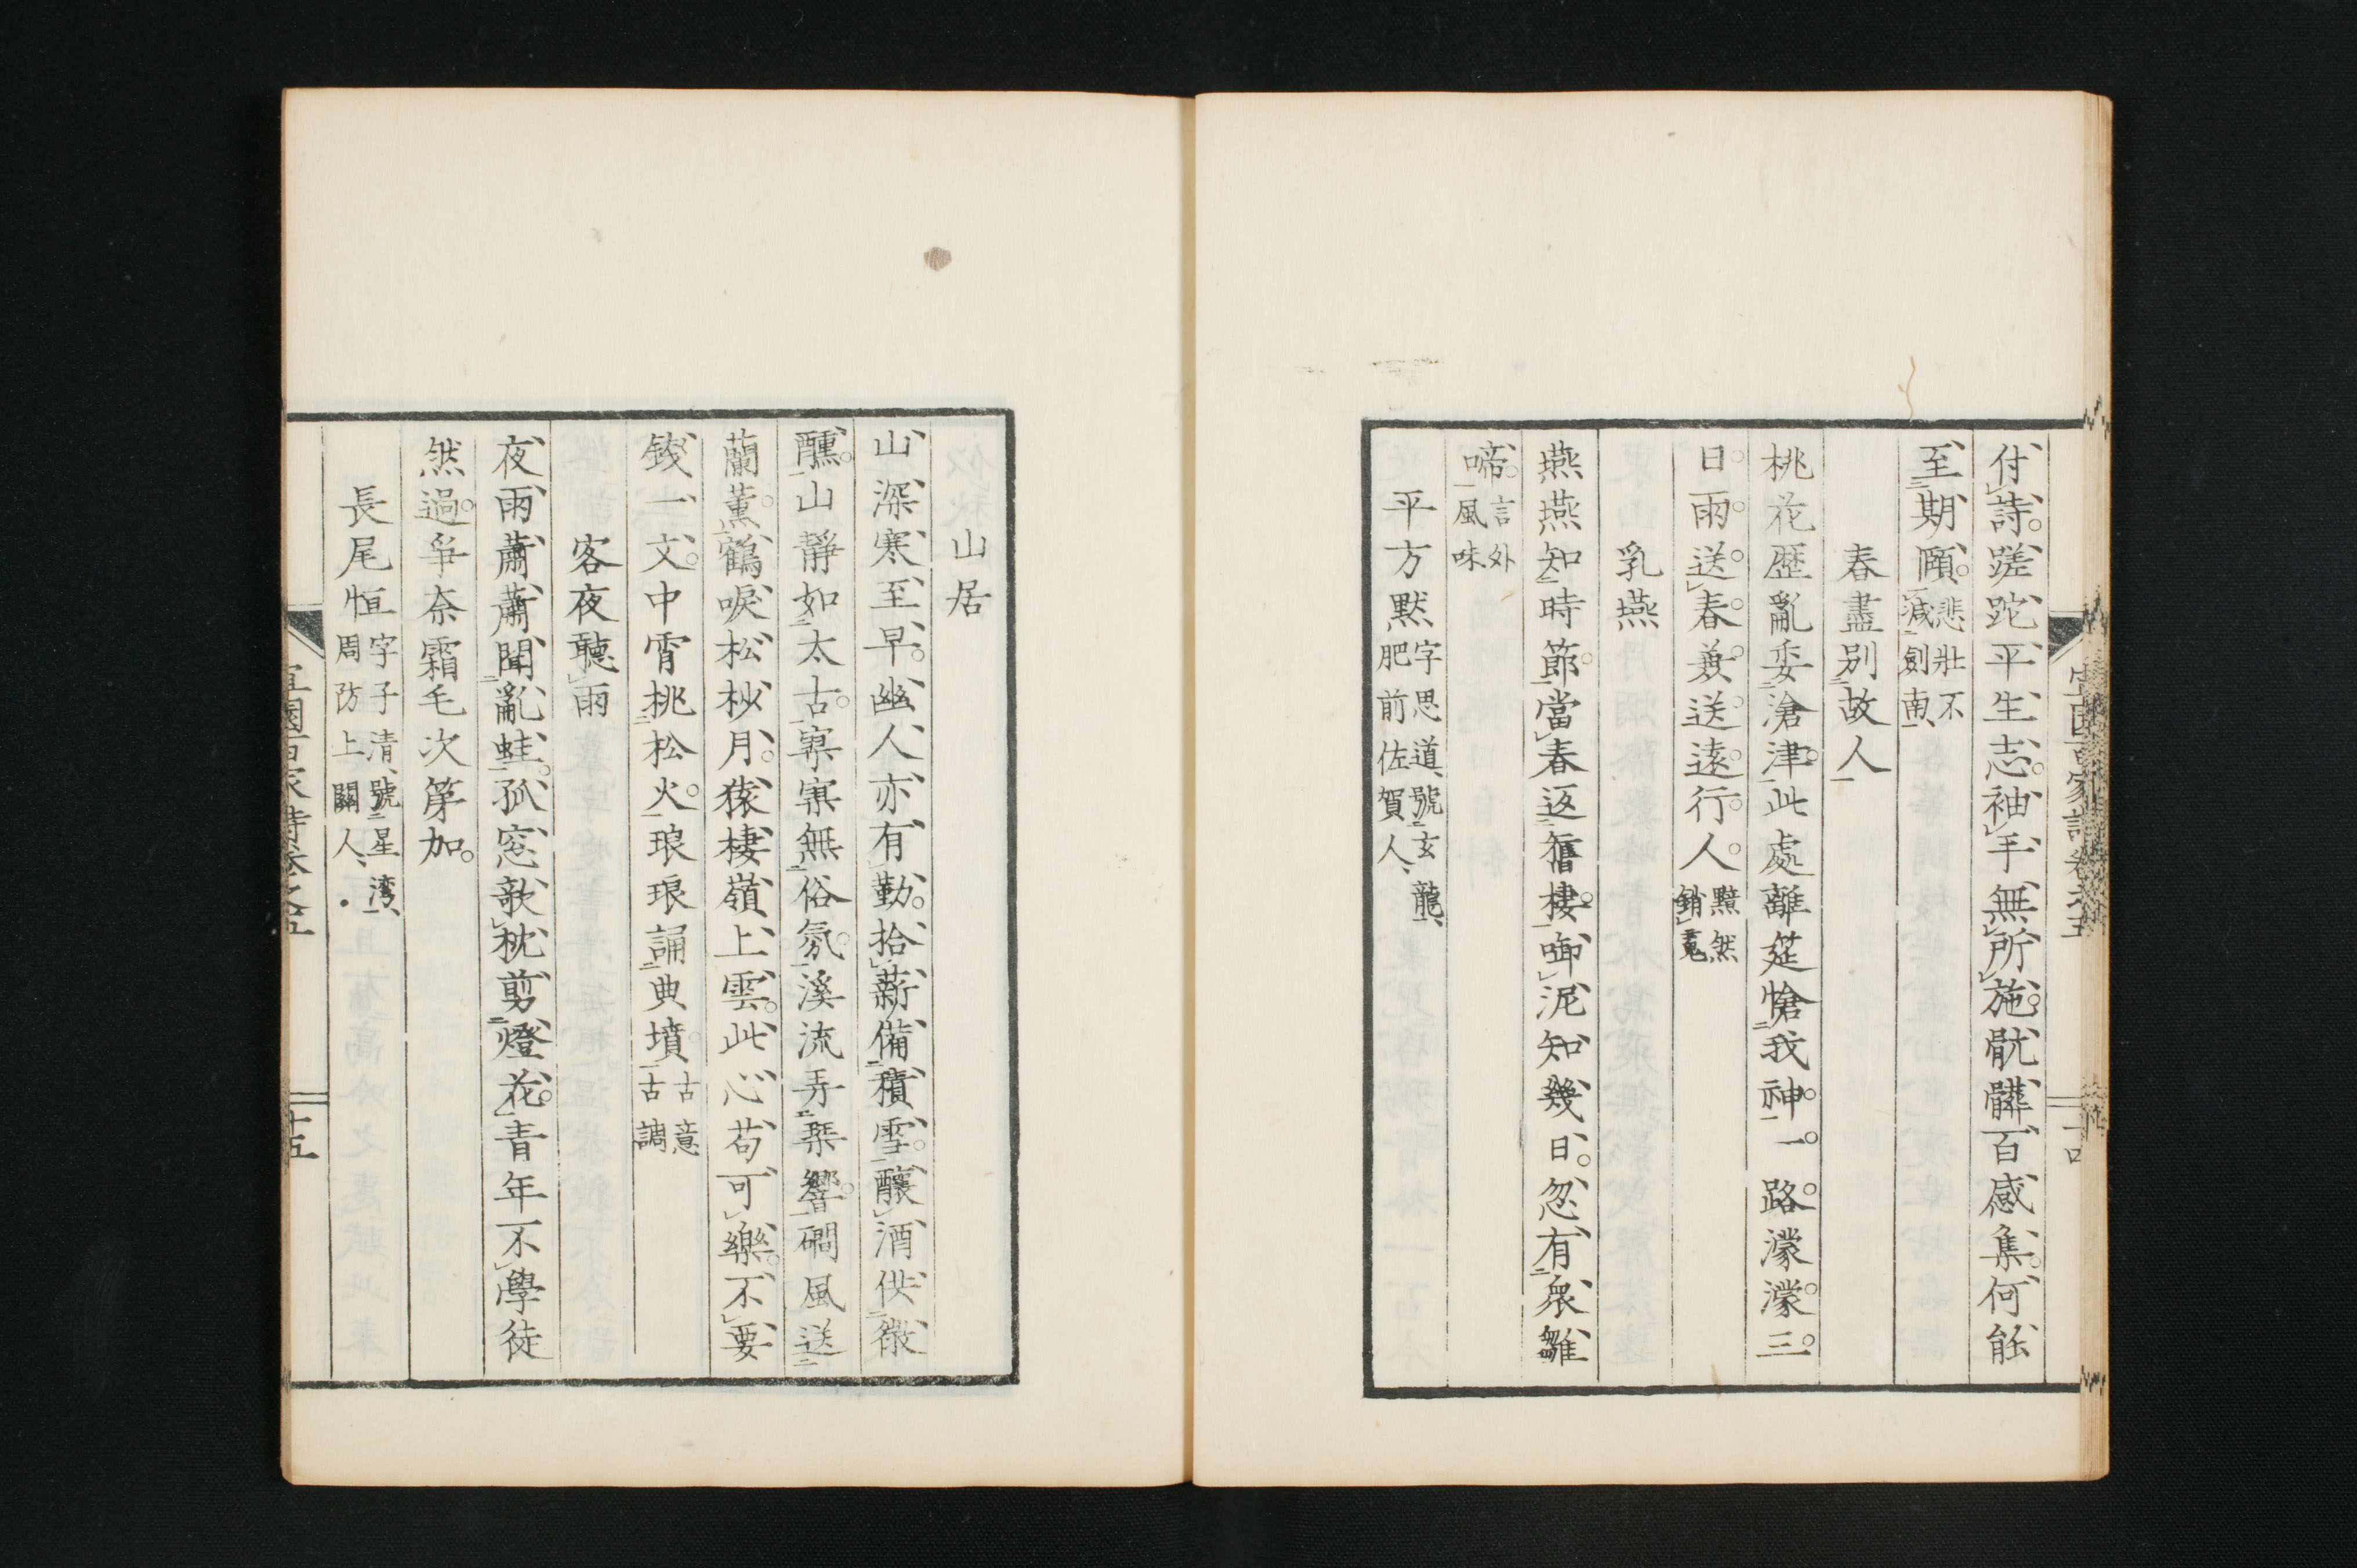 付詩。蹉跎平生志。袖手無所施。骯髒百感集。何能
至期頤。悲壯不減劍南
春盡別故人
桃花歷亂委滄津。此處離筵愴我神。一路濛濛三
日雨。送春兼送遠行人。黯然銷魂
乳燕
燕燕知時節。當春返舊棲。啣泥知幾日。忽有衆雛
啼。言外風味
平方默字思道、號玄龍、肥前佐賀人、
宜園百家詩卷之五
山居
山深寒至早。幽人亦有勤。拾薪備積雪。釀酒供微
醺。山靜如太古。寞寞無俗氛。溪流弄琴響。磵風送
蘭薰。鶴唳松杪月。猿棲嶺上雲。此心苟可樂。不要
錢一文。中霄挑松火。琅琅誦典墳。古意古調
客夜聽雨
夜雨蕭蕭聞亂蛙。孤窓欹枕剪燈花。青年不學徒
然過。爭奈霜毛次第加。
長尾恒字子清、號星湾、周防上關人、
宜園百家詩卷之五
十五